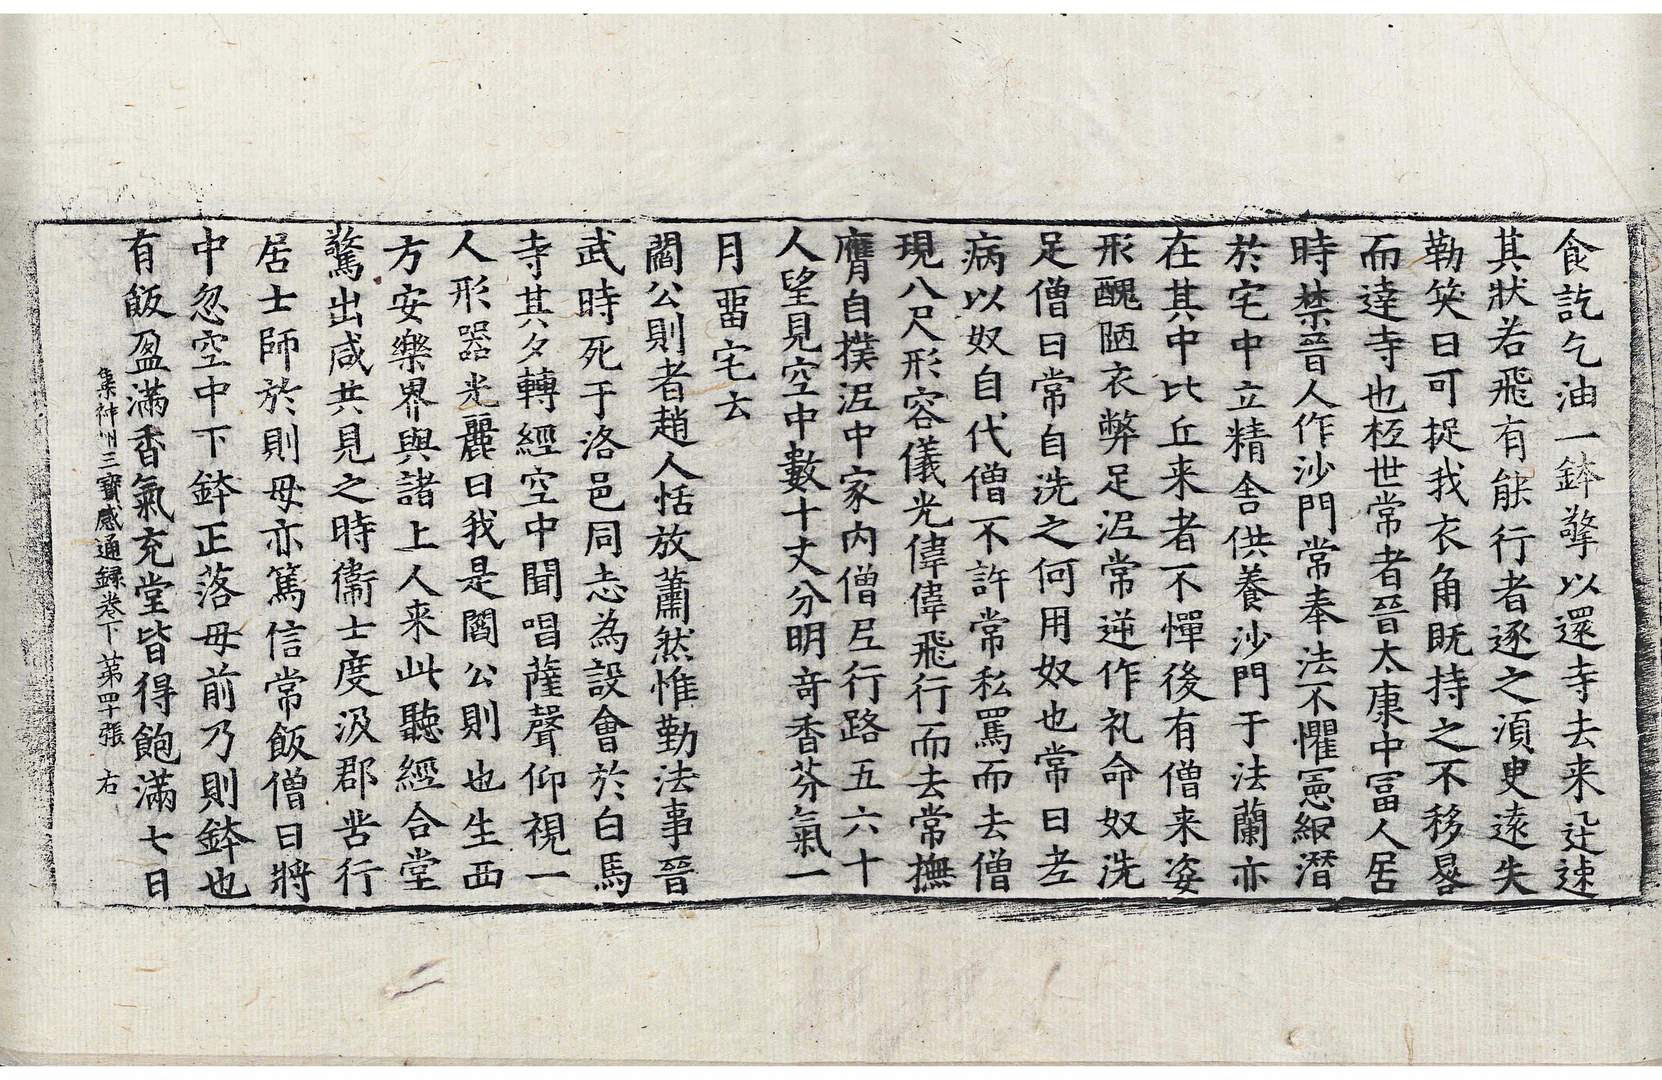 食訖乞油一鉢擎以還寺去来迅速
其狀若飛有能行者逐之湏臾遠失
勒笑曰可捉我衣角旣持之不移晷
而達寺也抵世常者晉太康中冨人居
時禁晉人作沙門常奉法不懼憲網潛
於宅中立精舎供養沙門于法蘭亦
在其中比丘来者不憚後有僧来姿
形醜陋衣弊足泥常逆作礼命奴洗
足僧曰常自洗之何用奴也常曰老
病以奴自代僧不許常私罵而去僧
現八尺形容儀光偉偉飛行而去常撫
膺自撲泥中家内僧尼行路五六十
人望見空中數十丈分明竒香芬氣一
月畱宅去
閻公則者趙人恬放蕭然惟勤法事晉
武時死于洛邑同志為設會於白馬
寺其夕轉經空中聞唱薩聲仰視一
人形器光麗曰我是閻公則也生西
方安樂界與諸上人来此聽經合堂
驚出咸共見之時衞士度汲郡苦行
居士師於則母亦篤信常飯僧日將
中忽空中下鉢正落母前乃則鉢也
有飯盈滿香氣充堂皆得飽滿七日
集神州三寳感通録卷下 第四十張 右